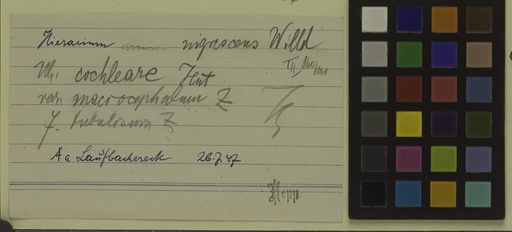 Hieracium nigrescens Willd
cochleare Hut
var. macrocephalum Z
f. tubulosum Z
Aa Laufbachereck 26.7.47
Hepp